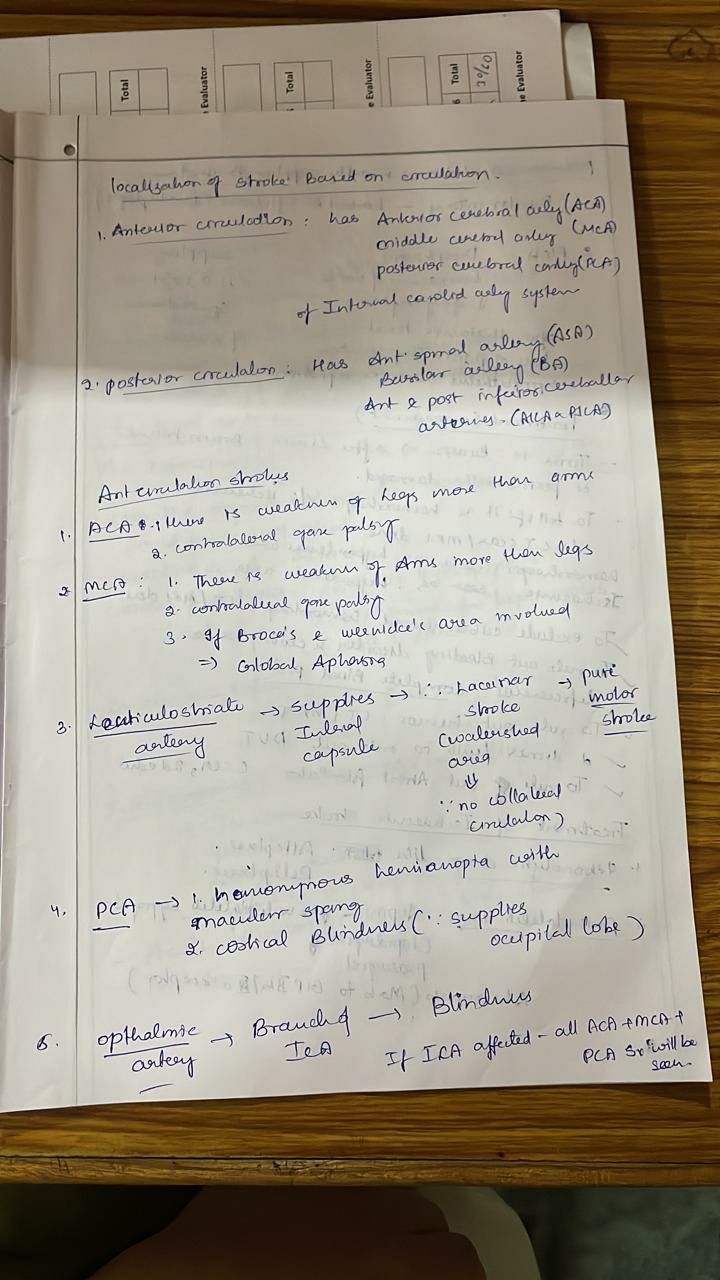 Total
e Evaluator
Total
e Evaluator
Total
ne Evaluator
Localisation of stroke Based on circulation.
1. Anterior circulation : has Anterior cerebral artery (ACA)
middle cerebral artery (MCA)
posterior cerebral artery (PCA)
of Internal carotid artery system
2. posterior circulation : Has Ant. spinal artery (ASA)
Basilar artery (BA)
Ant & post inferior cerebellar
arteries. (AICA & PICA)
Ant circulation strokes
1. ACA : 1. there is weakness of Legs more than arms
2. contralateral gaze palsy
2. MCA : 1. There is weakness of Arms more than legs
2. contralateral gaze palsy
3. If Broca's & weenicke's area involved
=> Global Aphasia
3. Lenticulostriate artery → supplies Internal capsule → ∴ Lacunar stroke → pure motor stroke
(watershed area
⇓
∵ no collateral
circulation)
4. PCA → 1. homonymous hemianopia with
macular sparing
2. cortical Blindness (∵ supplies
occipital lobe)
5. opthalmic artery → Branch of ICA → Blindness
If ICA affected - all ACA + MCA +
PCA Sx will be
seen.